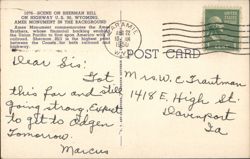 1076—SCENE ON SHERMAN HILL
ON HIGHWAY U.S. 30, WYOMING,
AMES MONUMENT IN THE BACKGROUND
Ames Monument commemorates the Ames
Brothers, whose financial backing enabled
the Union Pacific to first span America with
a railroad. Sherman Hill is the highest point
between the Coasts, for both railroad and
highway.
LARAMIE
AUG 22
1950
POST CARD
Dear Sis:
Got
this far and still
going strong. Expect
to get to Ogden
Tomorrow
Marcus
Mrs. W. C. Trautman
1418 E. High St.
Davenport
Ia